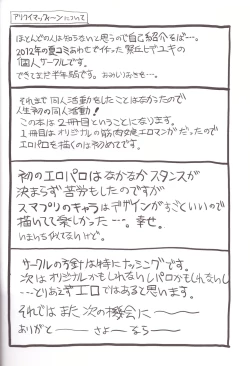 アリクイマッフィーンについて
ほとんどの人は知らないと思うので自己紹介をば…。
2012年の夏コミあわせで作った鷲丘ヒデユキの
個人サークルです。
できてまだ半年弱です。おみしりおきを…。
それまで同人活動をしたことはなかったので
人生初の同人活動!
この本は2冊目ということになります。
1冊目はオリジナルの筋肉娘エロマンガだったので
エロパロを描くのは初めてです。
初のエロパロはなかなかスタンスが
決まらず苦労もしたのですが
スマプリのキャラはデザインがすごくいいので
描いてて楽しかった…。幸せ。
いまいち似てないけど。
サークルの方針は特にナッシングです。
次はオリジナルかもしれないしパロかもしれないし
…とりあえずエロではあると思います。
それではまた次の機会に〜
ありがと〜さよーなら〜